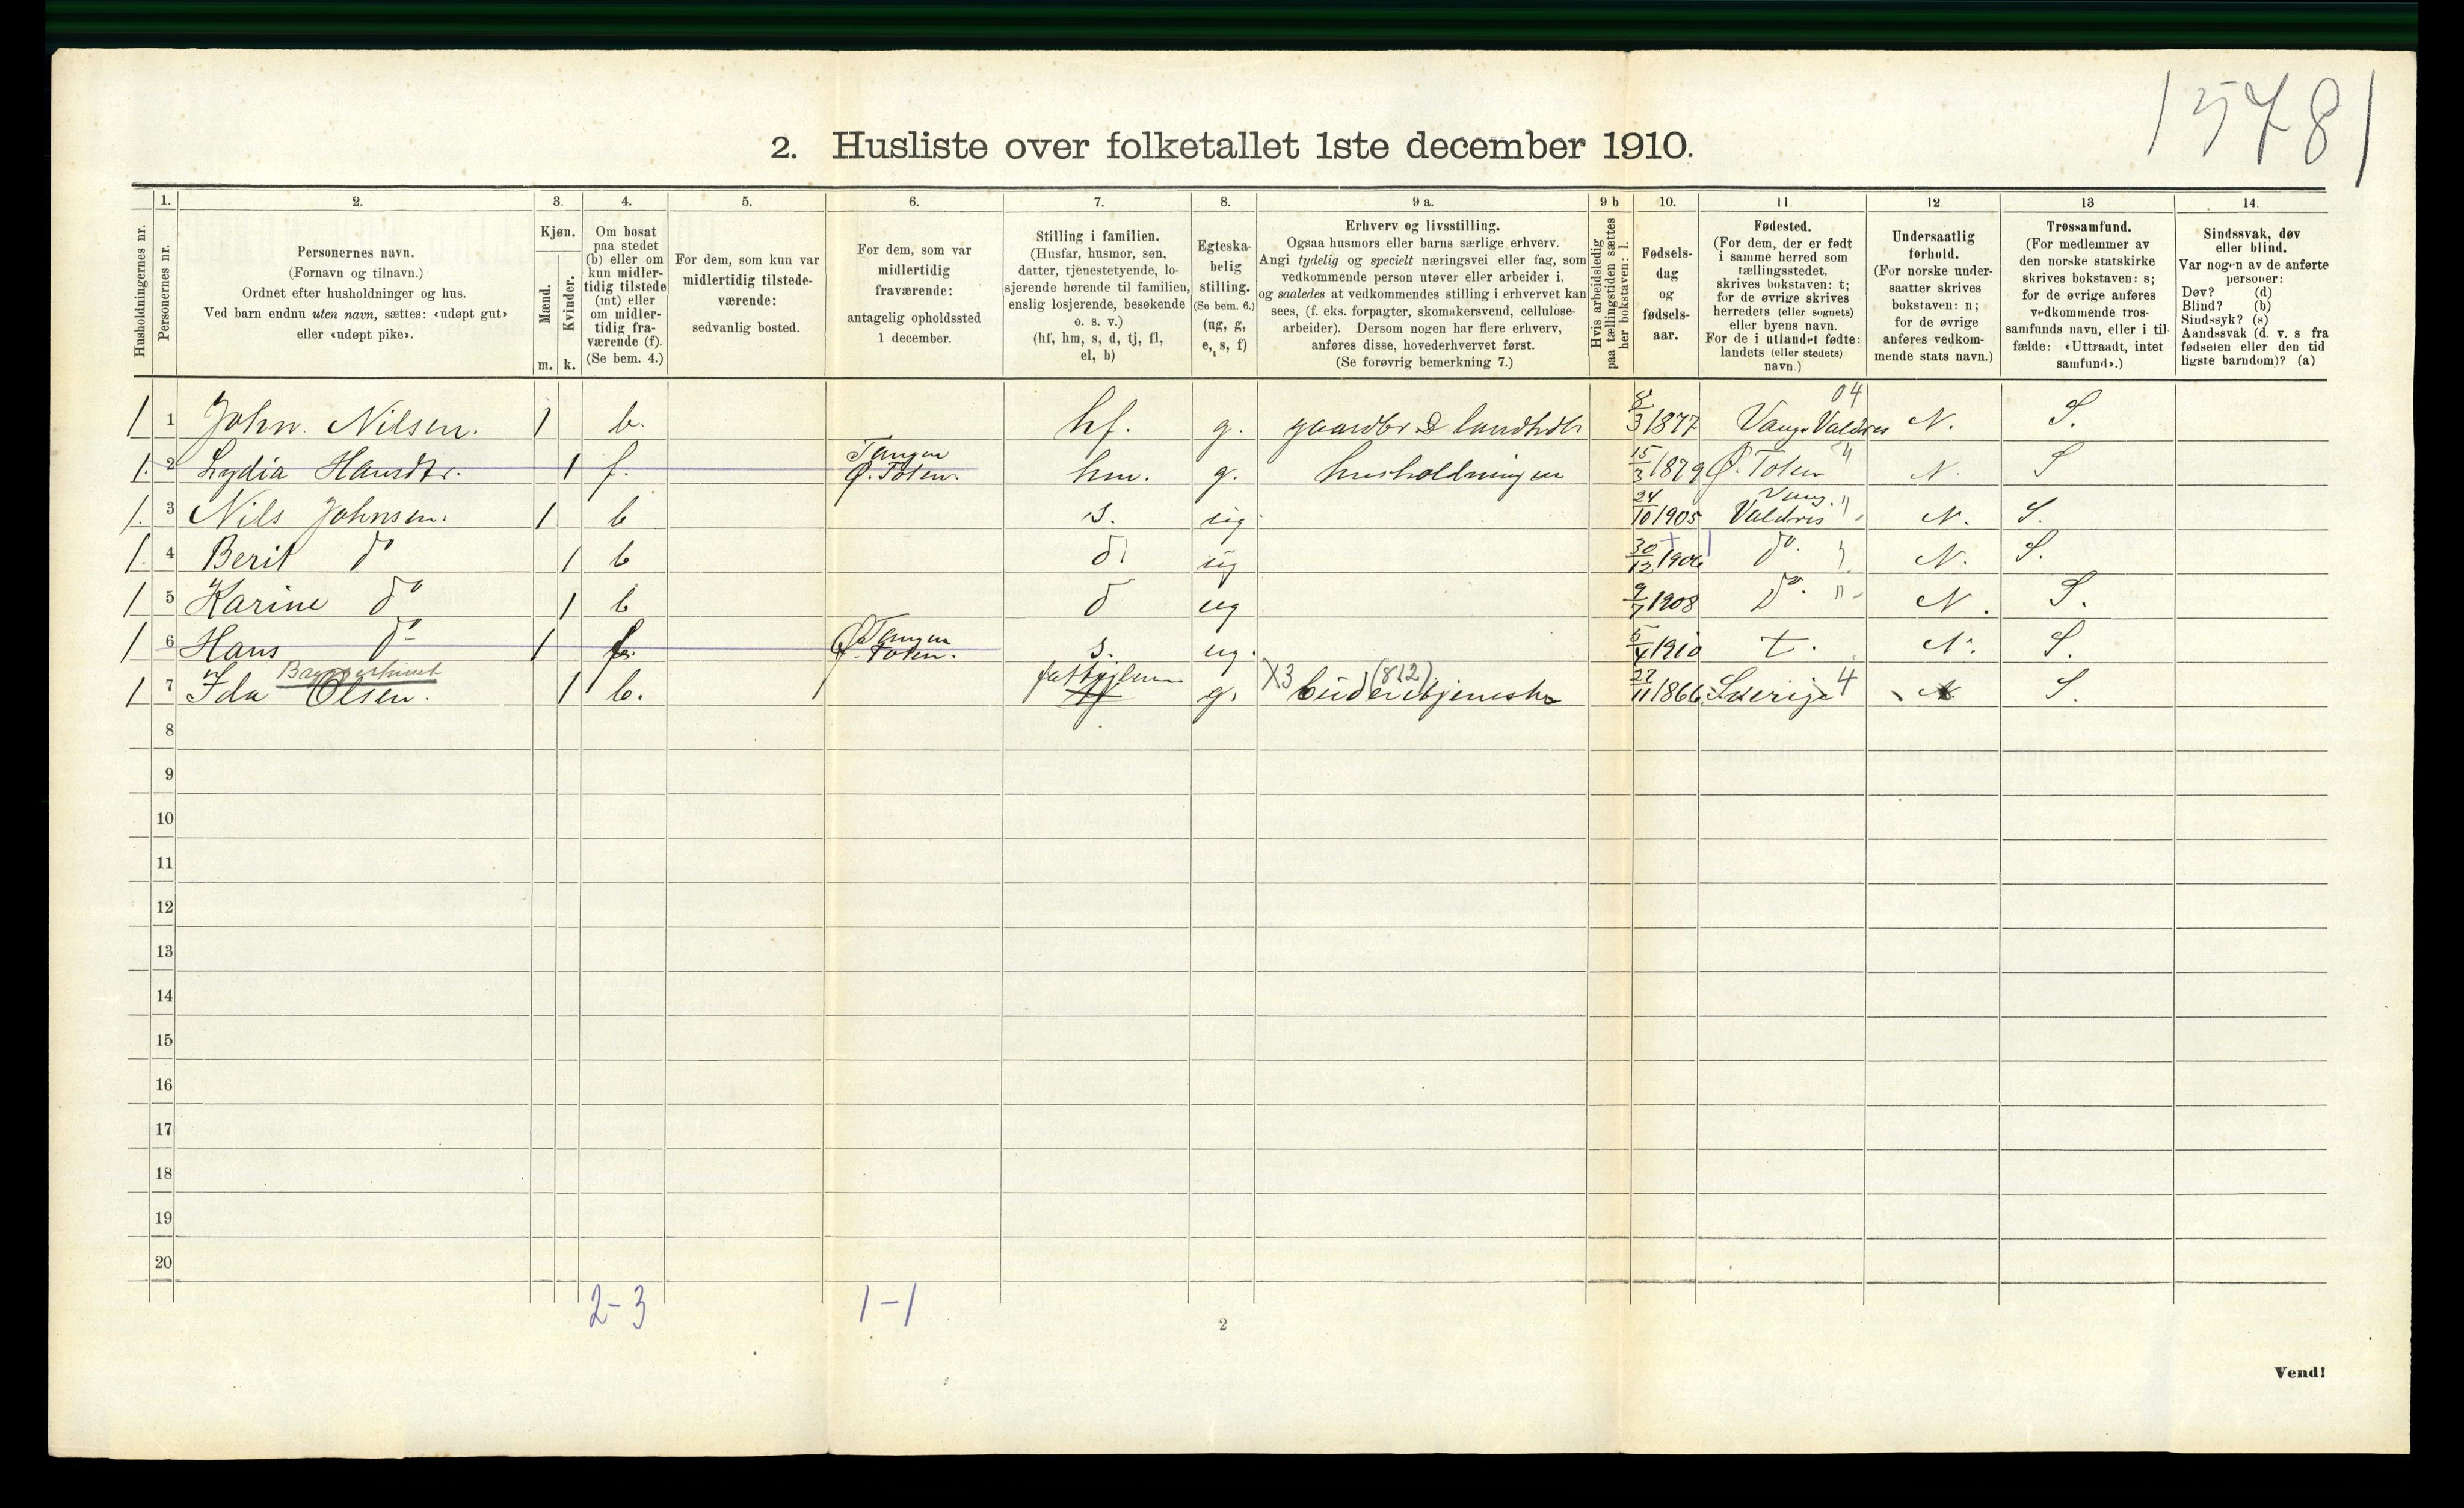 15781
2. Husliste over folketallet 1ste december 1910.
Husholdningernes nr.
1.
Personernes nr.
2.
Personernes navn.
(Fornavn og tilnavn.)
Ordnet efter husholdninger og hus.
Ved barn endnu uten navn, sættes: «udøpt gut»
eller «udøpt pike».
3.
Kjøn.
Mænd.
Kvinder.
m. k.
4.
Om bosat
paa stedet
(b) eller om
kun midler-
tidig tilstede
(mt) eller
om midler-
tidig fra-
værende (f).
(Se bem. 4.)
5.
For dem, som kun var
midlertidig tilstede-
værende:
sedvanlig bosted.
6.
For dem, som var
midlertidig
fraværende:
antagelig opholdssted
1 december.
7.
Stilling i familien.
(Husfar, husmor, søn,
datter, tjenestetyende, lo-
sjerende hørende til familien,
enslig losjerende, besøkende
o. s. v.)
(hf, hm, s, d, tj, fl,
el, b)
8.
Egteska-
belig
stilling.
(Se bem. 6.)
(ug, g,
e, s, f)
9 a.
Erhverv og livsstilling.
Ogsaa husmors eller barns særlige erhverv.
Angi tydelig og specielt næringsvei eller fag, som
vedkommende person utøver eller arbeider i,
og saaledes at vedkommendes stilling i erhvervet kan
sees, (f. eks. forpagter, skomakersvend, cellulose-
arbeider). Dersom nogen har flere erhverv,
anføres disse, hovederhvervet først.
(Se forøvrig bemerkning 7.)
9 b
Hvis arbeidsledig
paa tællingstiden sættes
her bokstaven: l.
10.
Fødsels-
dag
og
fødsels-
aar.
11.
Fødested.
(For dem, der er født
i samme herred som
tællingsstedet,
skrives bokstaven: t;
for de øvrige skrives
herredets (eller sognets)
eller byens navn.
For de i utlandet fødte:
landets (eller stedets)
navn.)
12
Undersaatlig
forhold.
(For norske under-
saatter skrives
bokstaven: n;
for de øvrige
anføres vedkom-
mende stats navn.)
13
Trossamfund.
(For medlemmer av
den norske statskirke
skrives bokstaven: s;
for de øvrige anføres
vedkommende tros-
samfunds navn, eller i til-
fælde: «Uttraadt, intet
samfund».)
14.
Sindssvak, døv
eller blind.
Var nogen av de anførte
personer:
Døv? (d)
Blind? (b)
Sindssyk? (s)
Aandssvak (d. v. s. fra
fødselen eller den tid
ligste barndom)? (a)
1 1 John Nilsen. 1 b. hf. g. gaardbr & landhdl 8/3 1877 Vang Valdres 04 N. S.
1. 2 Lydia Hansdtr. 1 f. Tangen Ø. Toten. hm. g. husholdningen 15/3 1879 Ø. Toten " N. S
1. 3 Nils Johnsen. 1 b s. ug 24/10 1905 Vang. Valdres " N. S.
1. 4 Berit do 1 b d. ug 30/12 1906 do. " N. S.
1 5 Karine do 1 b d ug 9/7 1908 Do. " N. S.
1 6 Hans do 1 f. Tangen Ø. Toten. s. ug. 5/4 1910 t. N. S.
1 7 Ida Olsen. 1 b. tj g. X3 (812) budeietjeneste 22/11 1866 Sverige 4 N S.
8
9
10
11
12
13
14
15
16
17
18
19
20
2-3 1-1
2
Vend!